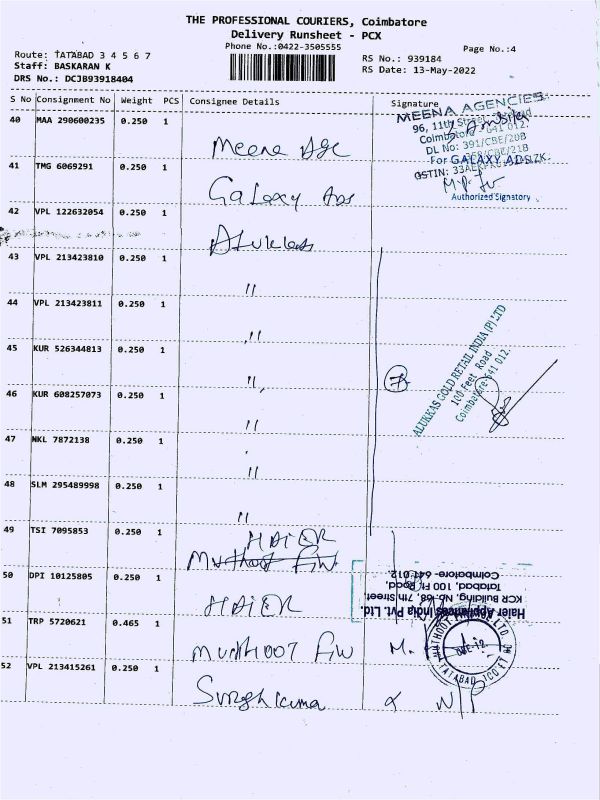 THE PROFESSIONAL COURIERS, Coimbatore
Delivery Runsheet - PCX
Phone No.:0422-3505555
Page No.:4
Route: TATABAD 3 4 5 6 7
Staff: BASKARAN K
DRS No.: DCJB93918404
RS No.: 939184
RS Date: 13-May-2022
S No Consignment No Weight PCS Consignee Details Signature
40 MAA 290600235 0.250 1 Meena Age
41 TMG 6069291 0.250 1 Galaxy Ads
42 VPL 122632054 0.250 1 Alukkas
43 VPL 213423810 0.250 1 "
44 VPL 213423811 0.250 1 "
45 KUR 526344813 0.250 1 "
46 KUR 608257073 0.250 1 "
47 NKL 7872138 0.250 1 "
48 SLM 295489998 0.250 1 "
49 TSI 7095853 0.250 1 HAIER
50 DPI 10125805 0.250 1 HAIER
51 TRP 5720621 0.465 1 Muthoot Fin M.
52 VPL 213415261 0.250 1
MEENA AGENCIES
96, 11th Street
Coimbatore - 641 012.
DL No: 391/CBE/20B
391/CBE/21B
For GALAXY ADS
GSTIN:
Authorized Signatory
7
ALUKKAS GOLD RETAIL INDIA (P) LTD
100 Feet Road
Coimbatore-641 012.
Haier Appliances India Pvt. Ltd.
KCR Building, No.68, 7th Street,
Tatabad, 100 Ft. Road,
Coimbatore- 641 012.
MUTHOOT FINANCE LTD
TATABAD